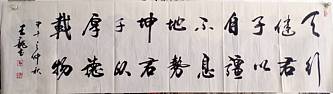 天行
健君
子以
自彊
不息
地勢
坤君
子以
厚德
載物
甲午仲秋